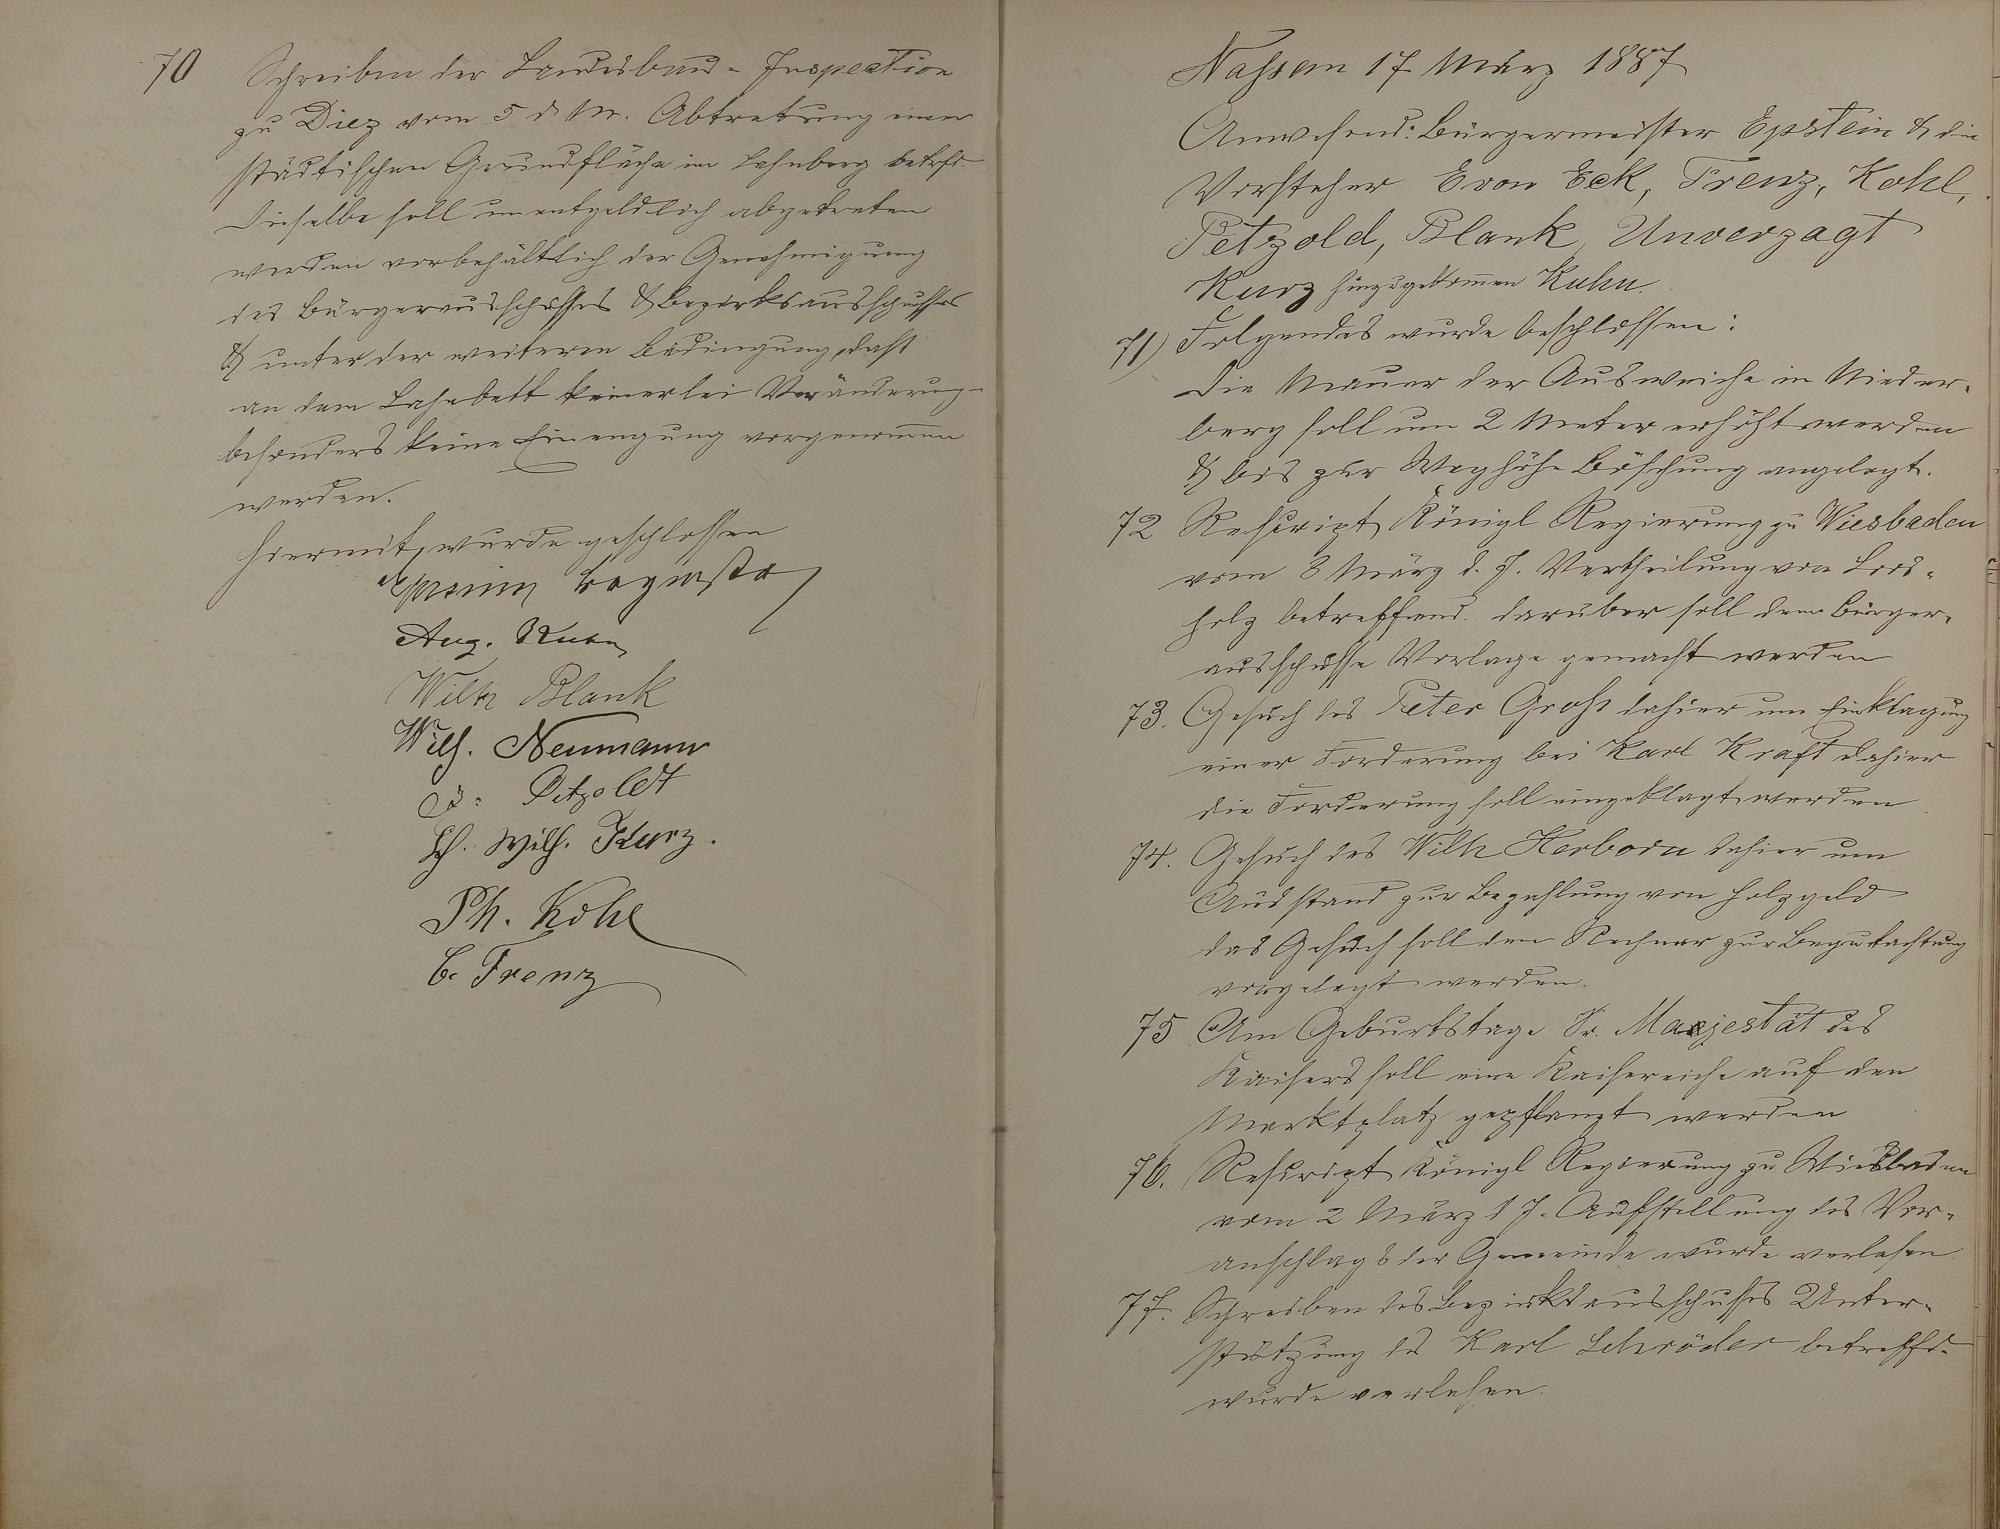 70 Schreiben der Landesbau-Inspection
zu Diez vom 5 d. M. Abtretung einer
städtischen Grundfläche im Lahnberg betrfd.
Dieselbe soll unentgeldlich abgetreten
werden vorbehältlich der Genehmigung
des Bürgerausschusses & Bezirksausschusses
& unter der weiteren Bedingung, daß
an dem Lahnbett keinerlei Veränderung
besonders keine Einengung vorgenommen
werden.
Hiermit wurde geschlossen
Epstein Bürgmstr
Aug. Kuhn
Wilh Blank
Wilh. Neumann
Petzoldt
Wilh. Kurz.
Ph. Kohl
C. Trenz
Nassau 17 März 1887
Anwesend: Bürgermeister Epstein & die
Vorsteher E von Eck, Trenz, Kohl,
Petzold, Blank, Unverzagt
Kurz hinzugekommen Kuhn.
71) Folgendes wurde beschlossen:
Die Mauer der Ausweiche in Nieder-
berg soll um 2 Meter erhöht werden
& bis zur Weghöhe Böschung angelegt.
72 Rescript Königl Regierung zu Wiesbaden
vom 3 März d. J. Vertheilung von Loos-
holz betreffend. darüber soll dem Bürger-
ausschusse Vorlage gemacht werden
73. Gesuch des Peter Groß dahier um Einklagung
einer Forderung bei Karl Kraft dahier
die Forderung soll eingeklagt werden
74. Gesuch des Wilh Herborn dahier um
Ausstand zur Bezahlung von Holzgeld
das Gesuch soll dem Rechner zur Begutachtung
vorgelegt werden.
75 Am Geburtstage Sr. Majestät des
Kaisers soll eine Kaisereiche auf den
Marktplatz gepflanzt werden
76. Rescript Königl Regierung zu Wiesbaden
vom 2 März d J. Aufstellung des Vor-
anschlags der Gemeinde wurde verlesen
77. Schreiben des Bezirksausschusses Unter-
stützung des Karl Schröder betreffd.
wurde verlesen.